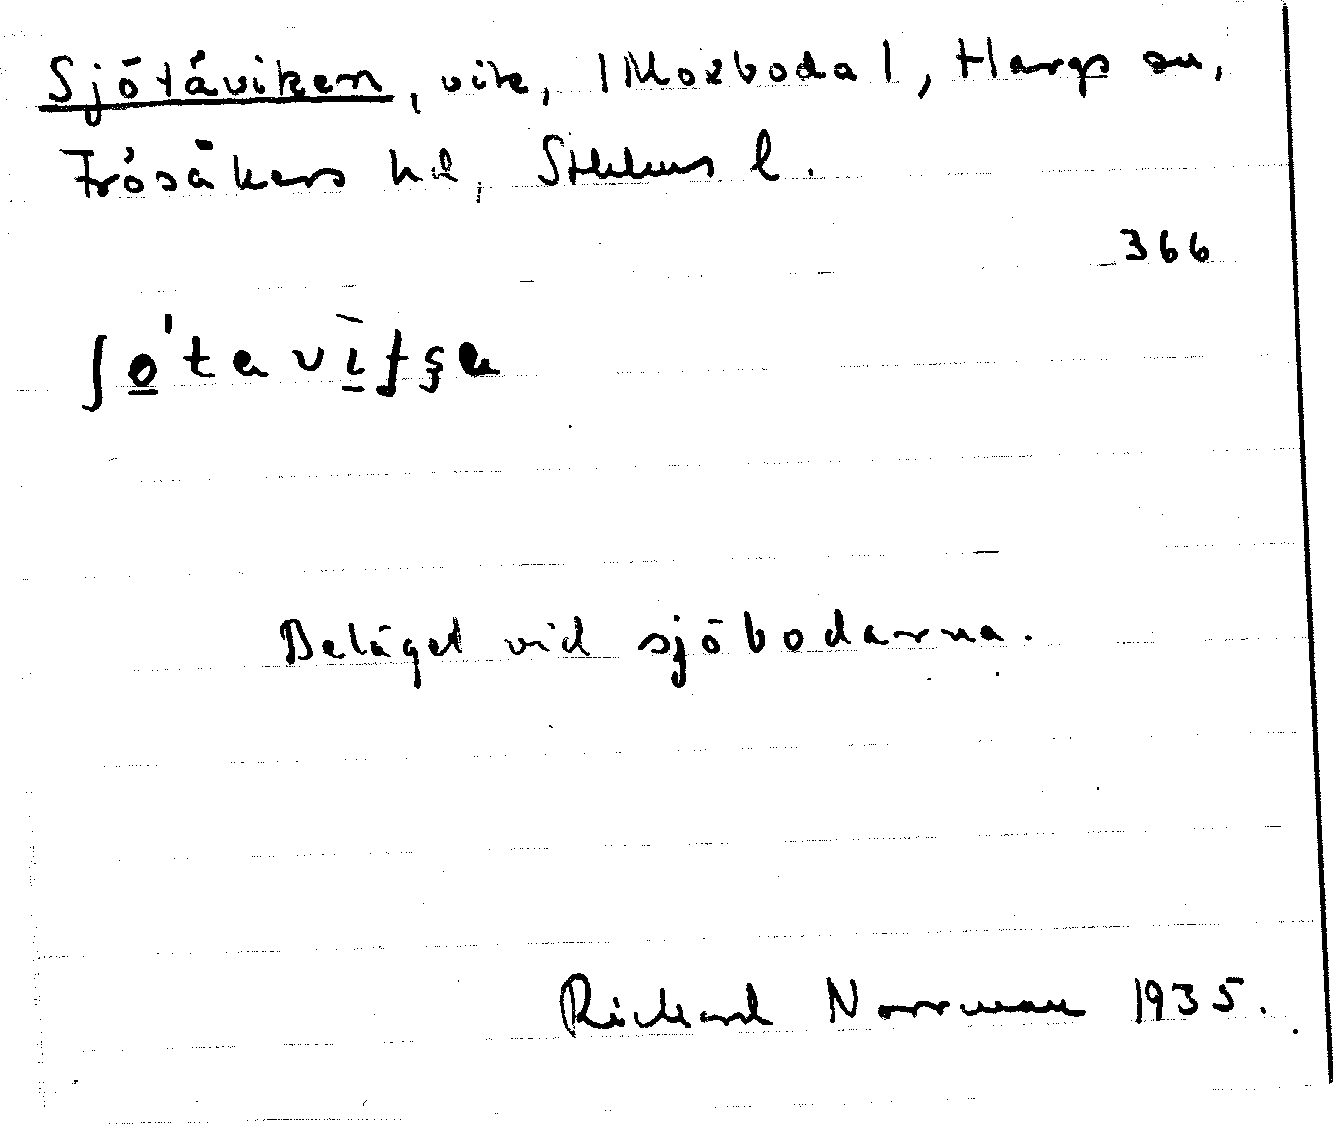 Sjötåviken, vik, |Morboda|, Hargs sn,
Frösåkers hd, Sthlms l.
366
Beläget vid sjöbodarna.
Rickard Norrman 1935.